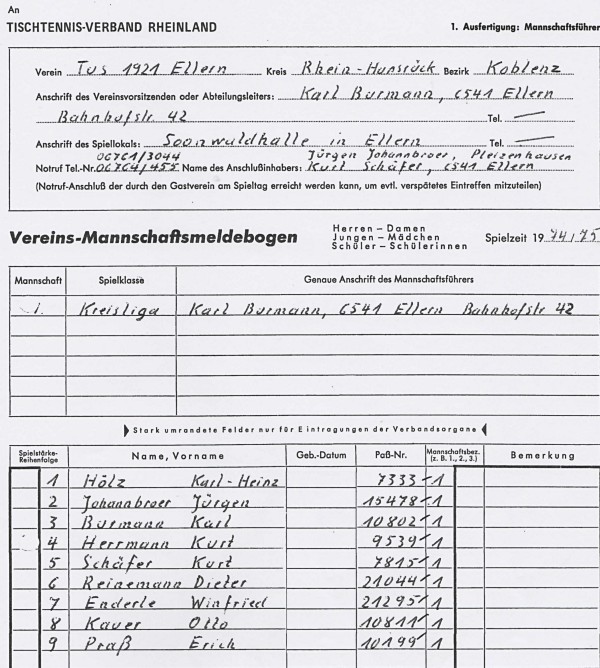 An
TISCHTENNIS-VERBAND RHEINLAND 1. Ausfertigung: Mannschaftsführer
Verein Tus 1921 Ellern Kreis Rhein-Hunsrück Bezirk Koblenz
Anschrift des Vereinsvorsitzenden oder Abteilungsleiters: Karl Burmann, 6541 Ellern
Bahnhofstr. 42 Tel. —
Anschrift des Spiellokals: Soonwaldhalle in Ellern Tel. —
06761/3044 Jürgen Johannbroer, Pleizenhausen
Notruf Tel.-Nr. 06764/455 Name des Anschlußinhabers: Kurt Schäfer, 6541 Ellern
(Notruf-Anschluß der durch den Gastverein am Spieltag erreicht werden kann, um evtl. verspätetes Eintreffen mitzuteilen)
Vereins-Mannschaftsmeldebogen
Herren – Damen
Jungen – Mädchen
Schüler – Schülerinnen
Spielzeit 19 74/75
Mannschaft Spielklasse Genaue Anschrift des Mannschaftsführers
1. Kreisliga Karl Burmann, 6541 Ellern Bahnhofstr 42
Stark umrandete Felder nur für Eintragungen der Verbandsorgane
Spielstärke-Reihenfolge Name, Vorname Geb.-Datum Paß-Nr. Mannschaftsbez. (z. B. 1., 2., 3.) Bemerkung
1 Hölz Karl-Heinz 7333 1
2 Johannbroer Jürgen 15478 1
3 Burmann Karl 10802 1
4 Herrmann Kurt 9539 1
5 Schäfer Kurt 7815 1
6 Reinemann Dieter 21044 1
7 Enderle Winfried 21295 1
8 Kauer Otto 10811 1
9 Praß Erich 10199 1